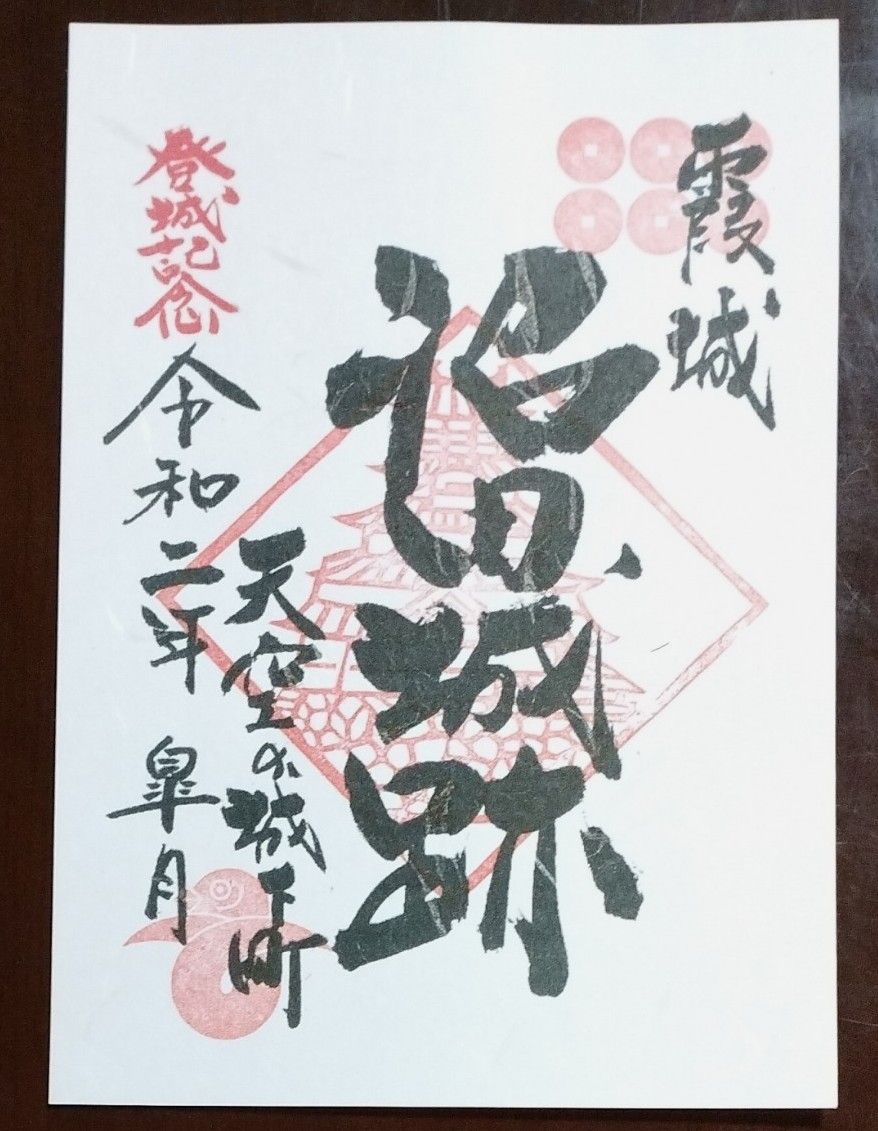 霞城
沼田城跡
天空の城下町
登城記念
令和二年 皐月